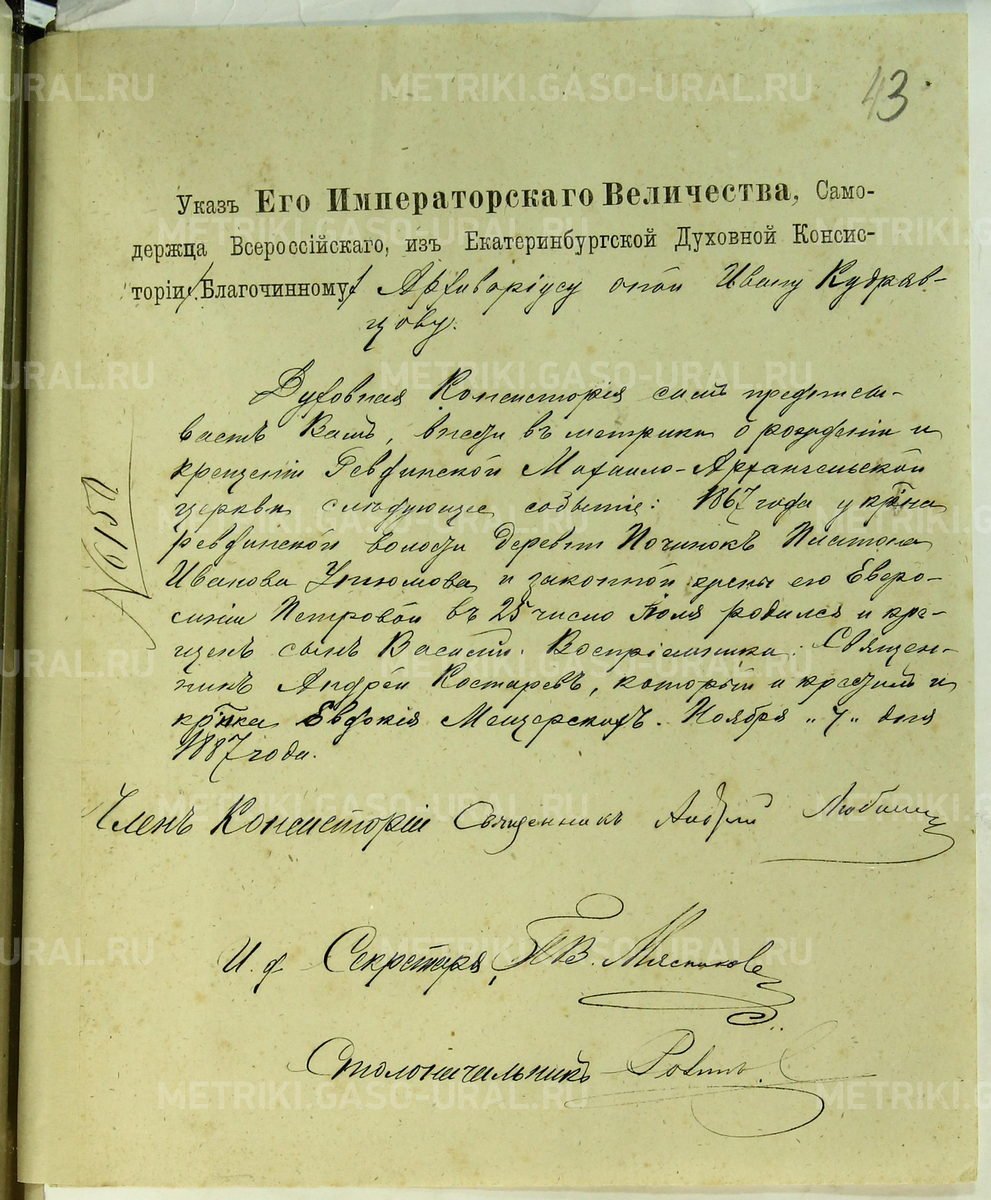 43
Указъ Его Императорскаго Величества, Само-
держца Всероссійскаго, изъ Екатеринбургской Духовной Консис-
торіи, Благочинному Архиваріусу оной Ивану Кудряв-
цову.
Духовная Консисторія симъ предписы-
ваетъ Вамъ, внести въ метрики о рожденіи и
крещеніи Ревдинской Михаило-Архангельской
церкви слѣдующее событіе: 1867 года у кр-на
Ревдинской волости деревни Починокъ Платона
Иванова и законной жены его Евро-
синіи Петровой въ 25 число Іюля родился и кре-
щенъ сынъ Василій. Воспріемники: Священ-
никъ Андрей Костаревъ, который и крестилъ и
кр-нка Евдокія Мещерскихъ. Ноября „7" дня
1887 года.
№ 6150
Членъ Консисторіи Священникъ Андрей
И. д. Секретаря, В. Мясников
Столоначальникъ
METRIKI.GASO-URAL.RU